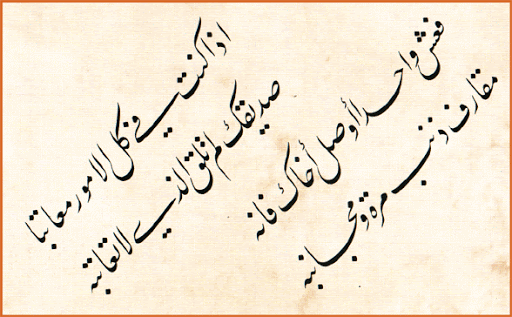 اذا كنت في كل الامور معاتبا
صديقك لم تلق الذي لا تعاتبه
فعش واحدا أو صل أخاك فانه
مقارف ذنب مرة ومجانبه